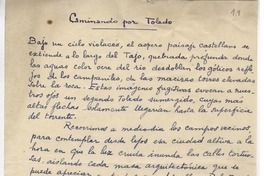 Caminando por Toledo
Bajo un cielo violaceo, el aspero paisaje castellano se
extiende a lo largo del Tajo, quebrada profunda donde
las aguas color ocre del rio desdoblan los góticos refle
jos de los campaniles, de las macizas torres elevadas
sobre la roca. Estas imagenes fugitivas evocan a nues
tros ojos un segundo Toledo sumergido, cuyas más
altas flechas solamente llegaran hasta la superficie
del torrente.
Recorrimos a mediodia los campos vecinos
para contemplar desde lejos esa ciudad altiva a la
hora en que la luz cruda inunda las calles tortuo
sas, aislando cada masa arquitectónica que se
puede apreciar